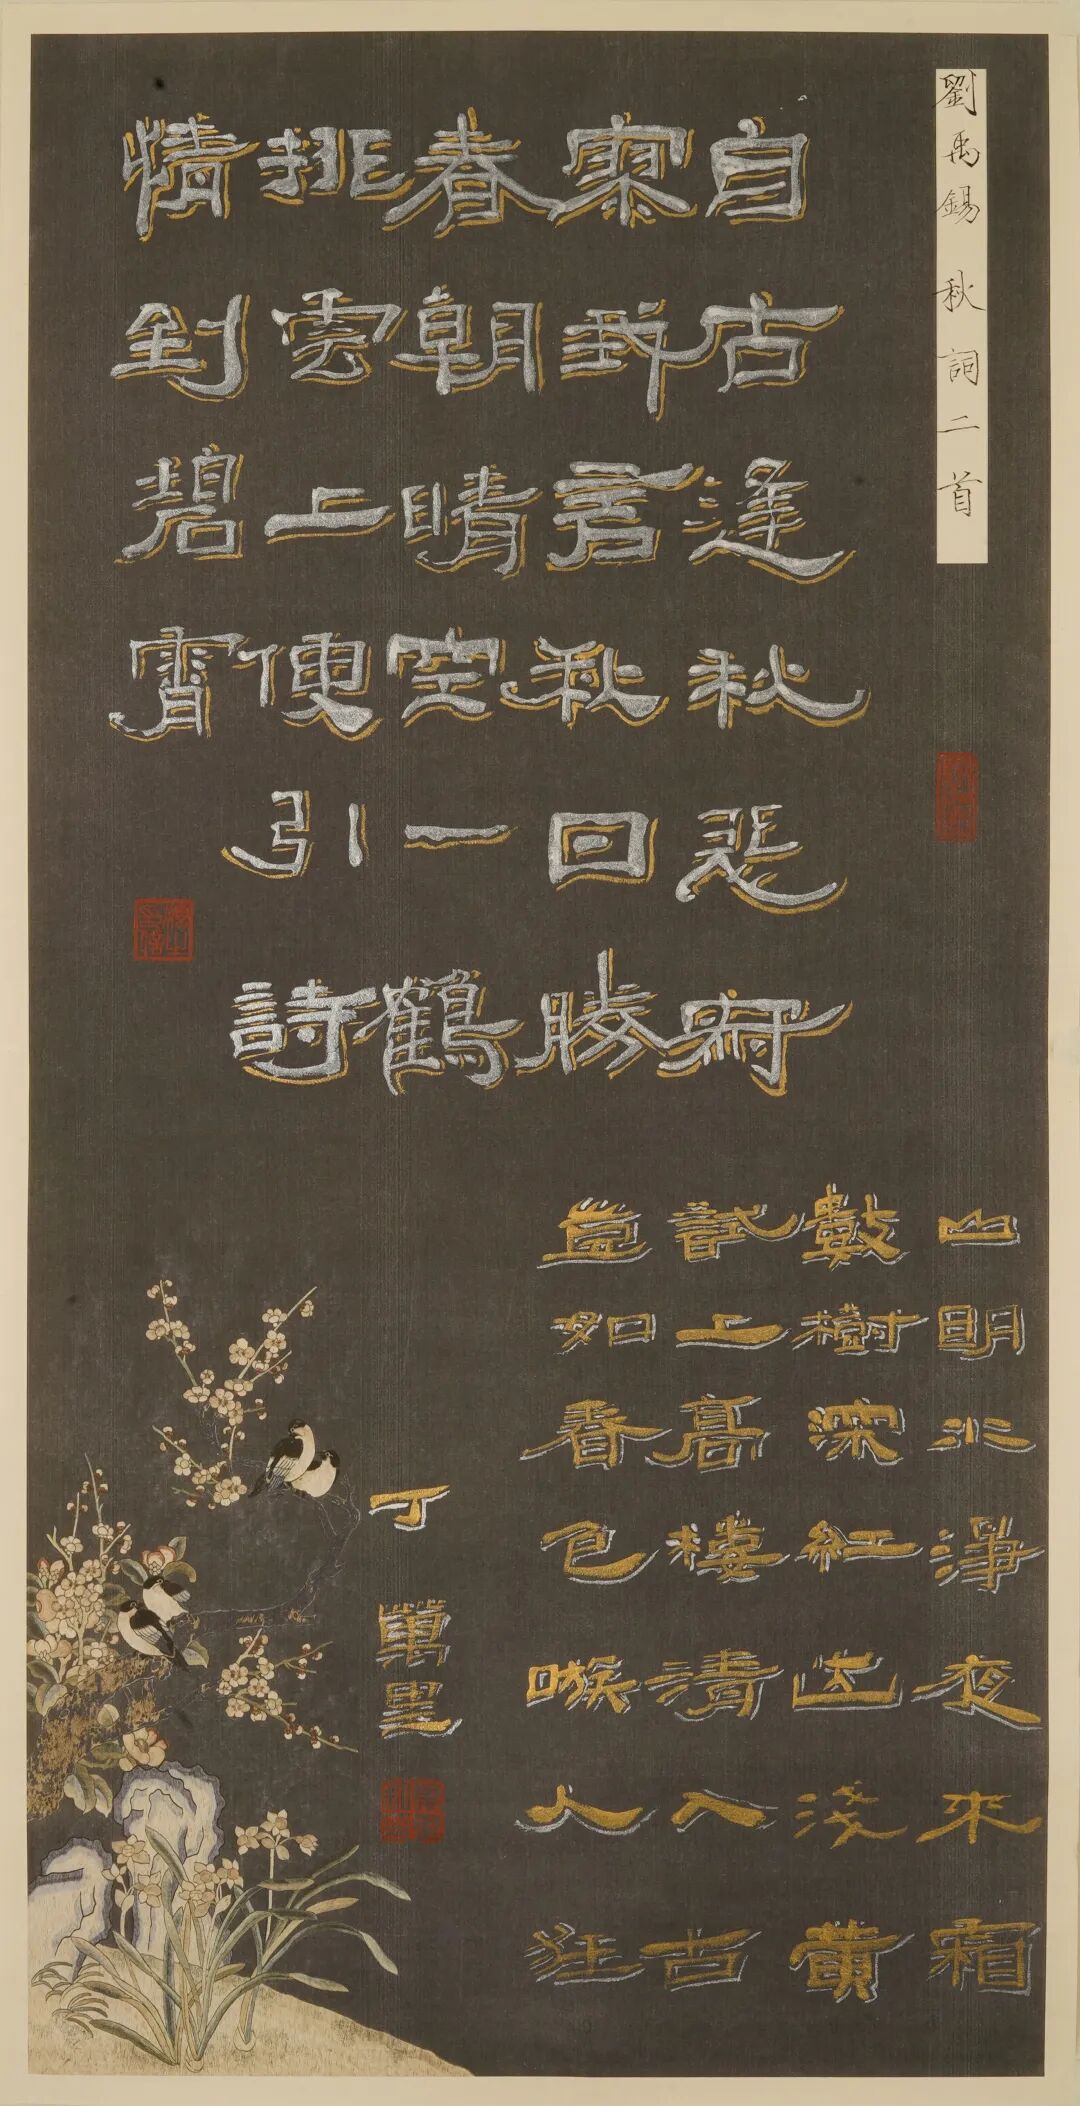 劉禹錫 秋詞二首
自古逢秋悲寂
寥我言秋日勝
春朝晴空一鶴
排雲上便引詩
情到碧霄
山明水淨夜來霜
數樹深紅出淺黃
試上高樓清入古
豈如春色嗾人狂
丁萬里